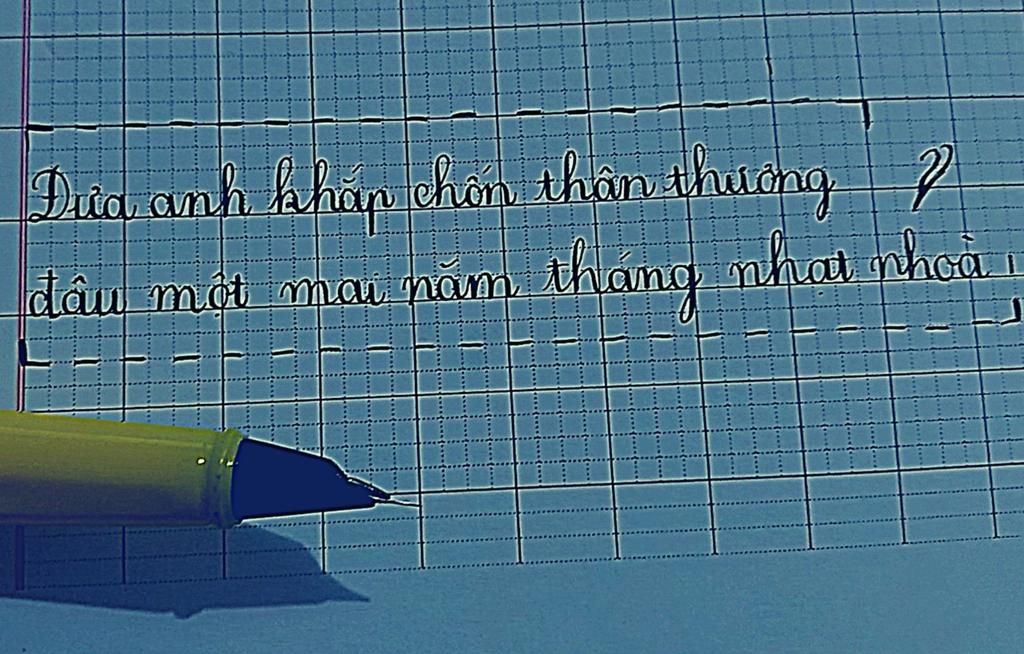 Đưa anh khắp chốn thân thương
đâu một mai năm tháng nhạt nhoà